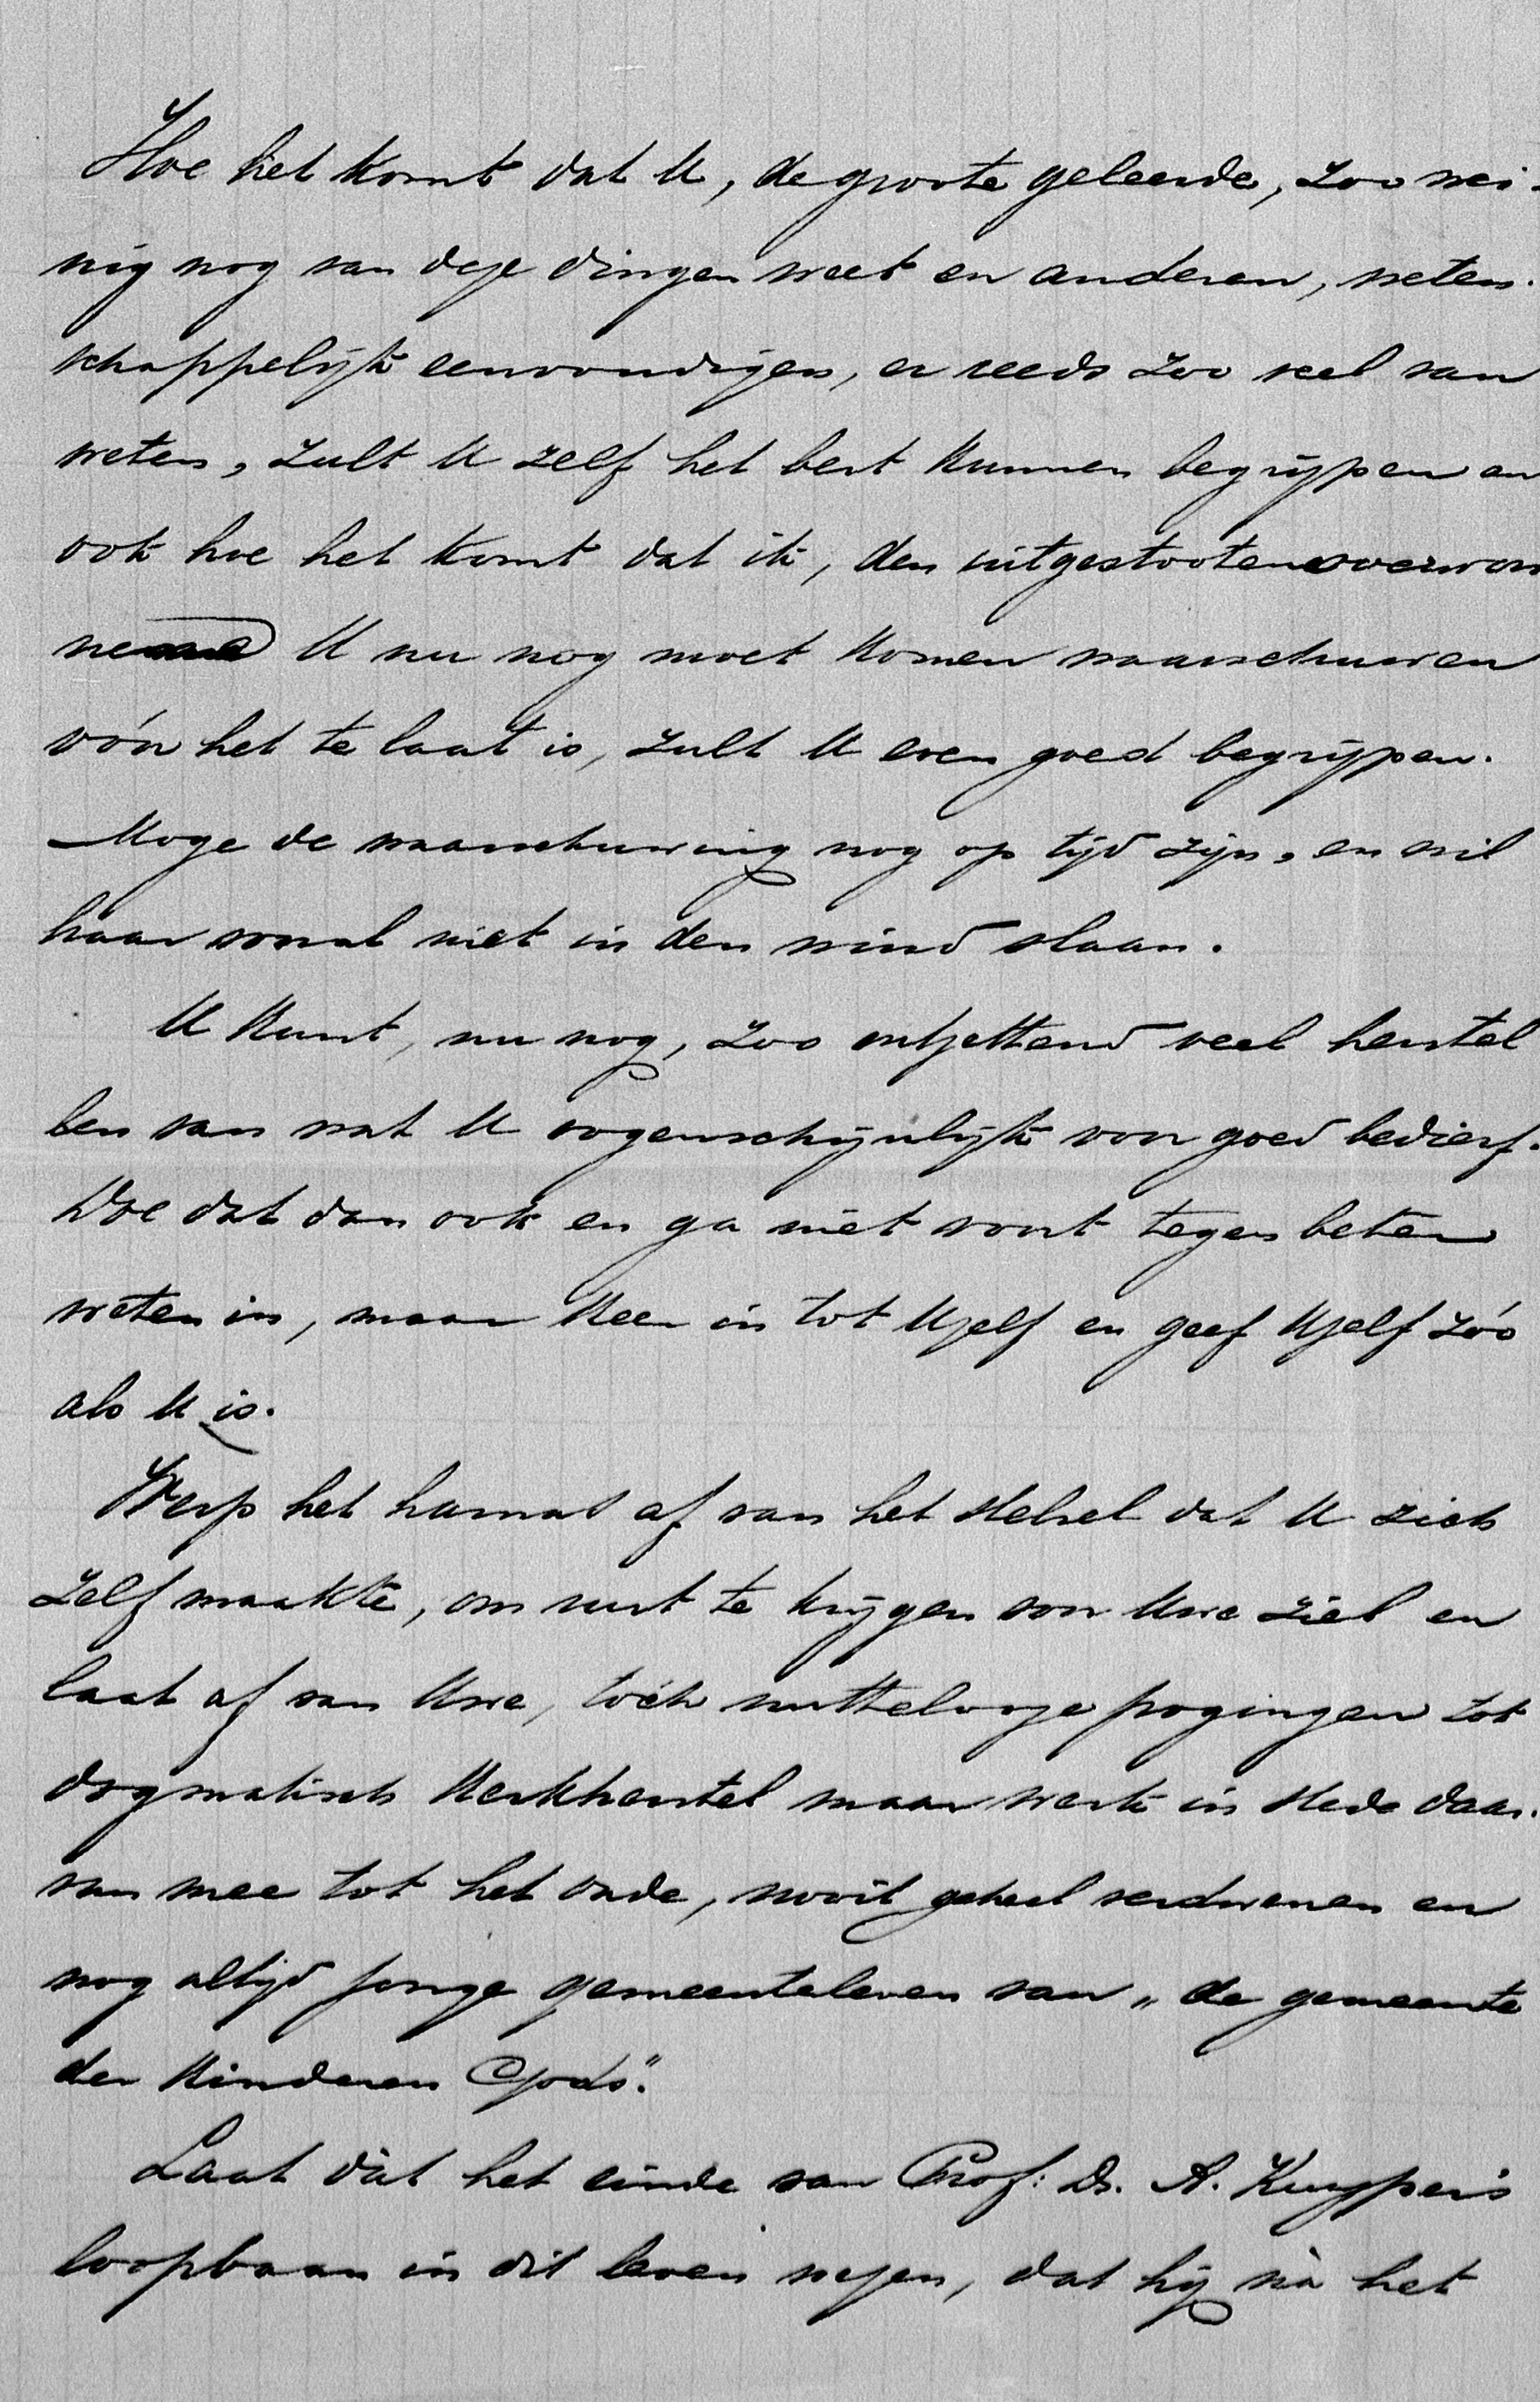 Hoe het komt dat U, de groote geleerde, zoo wei-
nig nog van deze dingen weet en anderen, weten-
schappelijk eenvoudigen, er reeds zoo veel van
weten, zult U zelf het best kunnen begrijpen en
ook hoe het komt dat ik, den uitgestooten overwon
nene U nu nog moet komen waarschuwen
vóór het te laat is, zult U even goed begrijpen.
Moge de waarschuwing nog op tijd zijn, en wil
haar vooral niet in den wind slaan.
U kunt, nu nog, zoo ontzettend veel herstel
len van wat U oogenschijnlijk voor goed bedierf.
Doe dat dan ook en ga niet voort tegen beter
weten in, maar keer in tot Uzelf en geef Uzelf zóó
als U is.
Werp het harnas af van het stelsel dat U zich
zelf maakte, om rust te krijgen voor Uwe ziel en
laat af van Uwe, tóch nuttelooze pogingen tot
dogmatisch kerkherstel maar werk in stede daar-
van mee tot het oude, nooit geheel verdwenen en
nog altijd jonge gemeenteleven van „de gemeente
der kinderen Gods".
Laat dàt het einde van Prof. Dr. A. Kuyper's
loopbaan in dit leven wezen, dat hij nà het